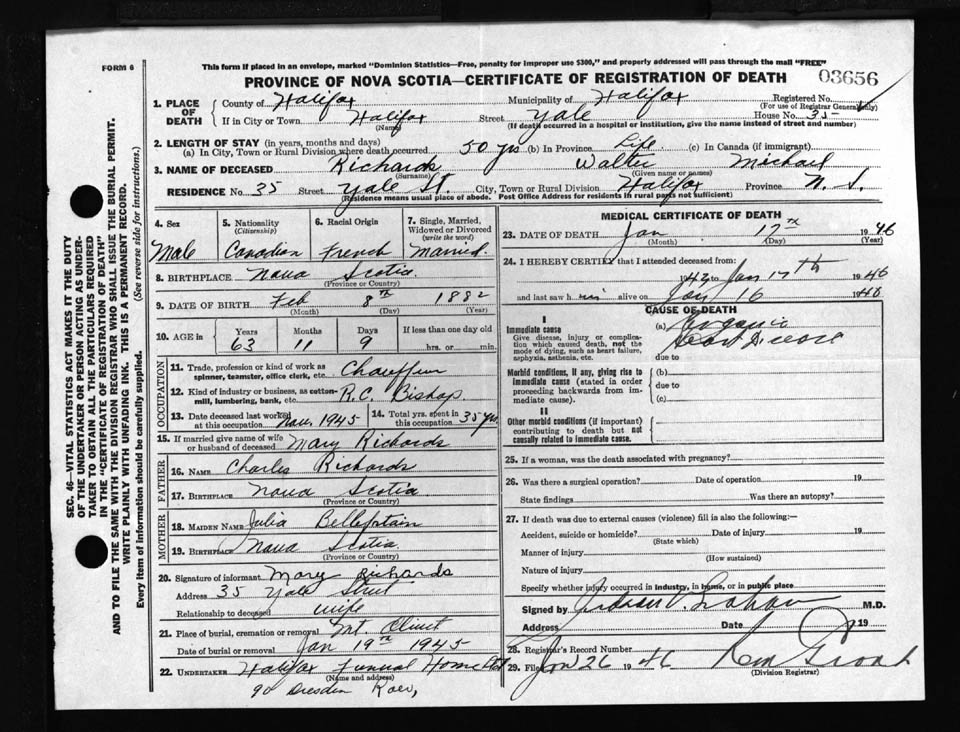 This form if placed in an envelope, marked "Dominion Statistics—Free, penalty for improper use $300," and properly addressed will pass through the mail "FREE"
FORM 6
PROVINCE OF NOVA SCOTIA—CERTIFICATE OF REGISTRATION OF DEATH
03656
1. PLACE OF DEATH County of Halifax Municipality of Halifax Registered No.
(For use of Registrar General only)
If in City or Town Halifax Street Yale House No. 35
(Name) (If death occurred in a hospital or institution, give the name instead of street and number)
2. LENGTH OF STAY (in years, months and days)
(a) In City, Town or Rural Division where death occurred 50 yrs (b) In Province Life (c) In Canada (if immigrant)
3. NAME OF DECEASED Richards Walter Michael
(Surname) (Given name or names)
RESIDENCE No. 35 Street Yale St. City, Town or Rural Division Halifax Province N. S.
(Residence means usual place of abode. Post Office Address for residents in rural parts not sufficient)
4. Sex 5. Nationality (Citizenship) 6. Racial Origin 7. Single, Married, Widowed or Divorced (write the word)
Male Canadian French Married.
8. BIRTHPLACE Nova Scotia
(Province or Country)
9. DATE OF BIRTH Feb 8th 1882
(Month) (Day) (Year)
10. AGE in Years Months Days If less than one day old
63 11 9 hrs. or min.
OCCUPATION
11. Trade, profession or kind of work as spinner, teamster, office clerk, etc. Chauffeur
12. Kind of industry or business, as cotton-mill, lumbering, bank, etc. R.C. Bishop
13. Date deceased last worked at this occupation Nov. 1945 14. Total yrs. spent in this occupation 35 yrs.
15. If married give name of wife or husband of deceased Mary Richards
FATHER
16. NAME Charles Richards
17. BIRTHPLACE Nova Scotia
(Province or Country)
MOTHER
18. MAIDEN NAME Julia
19. BIRTHPLACE Nova Scotia
(Province or Country)
20. Signature of informant Mary Richards
Address 35 Yale Street
Relationship to deceased wife
21. Place of burial, cremation or removal Mt. Olivet
Date of burial or removal Jan 19th 1945
22. UNDERTAKER Halifax Funeral Home
(Name and address)
90 Dresden Row,
MEDICAL CERTIFICATE OF DEATH
23. DATE OF DEATH Jan 17th 1946
(Month) (Day) (Year)
24. I HEREBY CERTIFY that I attended deceased from:
to Jan 17th 1946
and last saw him alive on Jan 16 1946
CAUSE OF DEATH
I
Immediate cause
Give disease, injury or complication which caused death, not the mode of dying, such as heart failure, asphyxia, asthenia, etc.
(a) Organic
Heart Disease
due to
Morbid conditions, if any, giving rise to immediate cause (stated in order proceeding backwards from immediate cause).
(b)
due to
(c)
II
Other morbid conditions (if important) contributing to death but not causally related to immediate cause.
25. If a woman, was the death associated with pregnancy?
26. Was there a surgical operation? Date of operation 19
State findings Was there an autopsy?
27. If death was due to external causes (violence) fill in also the following:—
Accident, suicide or homicide? Date of injury 19
(State which)
Manner of injury
(How sustained)
Nature of injury
Specify whether injury occurred in industry, in home, or in public place
Signed by M.D.
Address Date 19
28. Registrar's Record Number
29. Filed Jan 26 1946
(Division Registrar)
SEC. 46—VITAL STATISTICS ACT MAKES IT THE DUTY
OF THE UNDERTAKER OR PERSON ACTING AS UNDERTAKER TO OBTAIN ALL THE PARTICULARS REQUIRED
IN THE "CERTIFICATE OF REGISTRATION OF DEATH"
AND TO FILE THE SAME WITH THE DIVISION REGISTRAR WHO SHALL ISSUE THE BURIAL PERMIT.
WRITE PLAINLY WITH UNFADING INK. THIS IS A PERMANENT RECORD.
Every item of information should be carefully supplied. (See reverse side for instructions.)